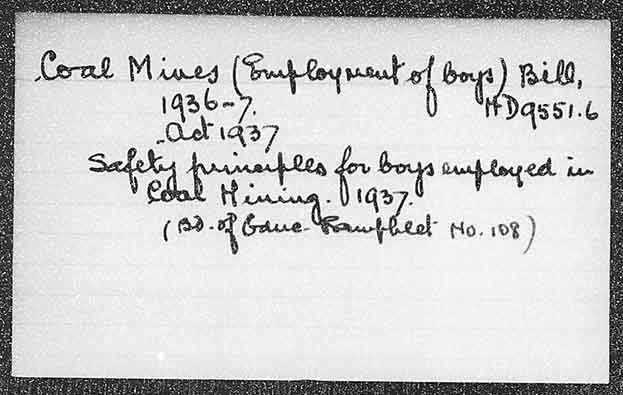 Coal Mines (Employment of boys) Bill,
1936-7. HD9551.6
Act 1937
Safety principles for boys employed in
Coal Mining. 1937.
(Bd. of Educ. Pamphlet No. 108)